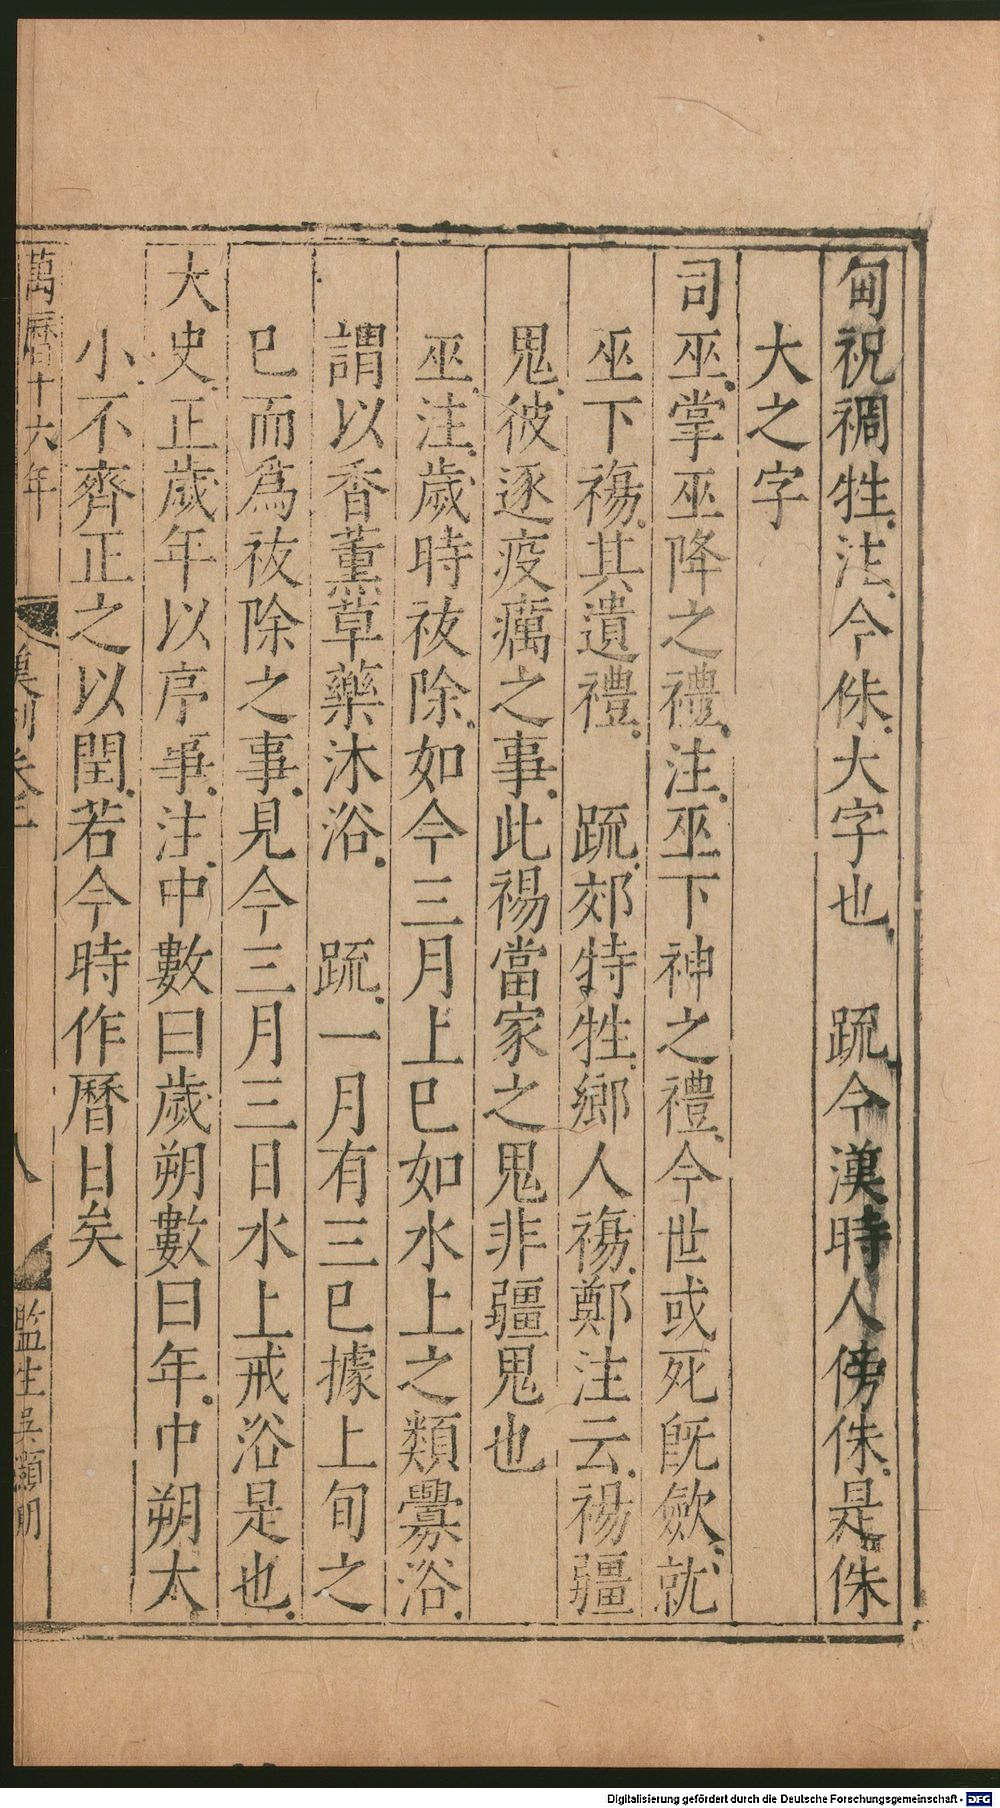 甸祝禂牲注今侏大字也　䟽今漢時人傍侏是侏
大之字
司巫掌巫降之禮注巫下神之禮今世或死旣斂就
巫下禓其遺禮　䟽郊特牲鄉人禓鄭注云禓疆
鬼彼逐疫癘之事此禓當家之鬼非疆鬼也
巫注歲時祓除如今三月上巳如水上之類釁浴
謂以香薰草藥沐浴　䟽一月有三巳據上旬之
巳而爲祓除之事見今三月三日水上戒浴是也
大史正歲年以序事注中數曰歲朔數曰年中朔大
小不齊正之以閏若今時作曆日矣
萬曆十六年
漢制卷三
八
監生吳顯明
Digitalisierung gefördert durch die Deutsche Forschungsgemeinschaft - DFG